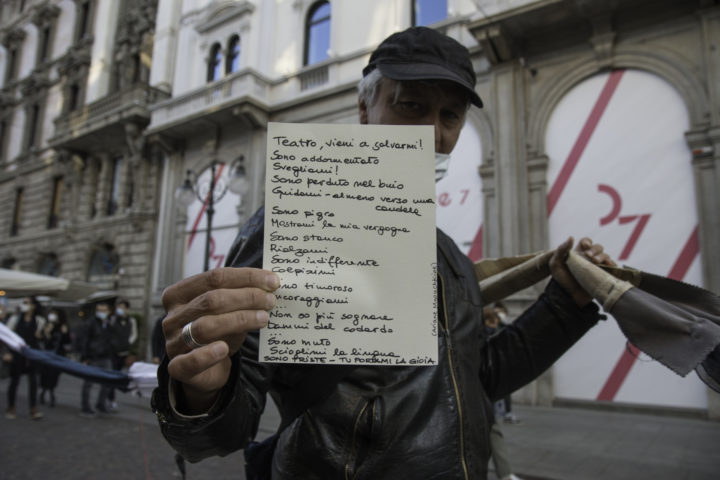 Teatro, vieni a salvarmi!
Sono addormentato
Svegliami!
Sono perduto nel buio
Guidami - almeno verso una
candela
Sono pigro
Mostrami la mia vergogna
Sono stanco
Rialzami
Sono indifferente
Colpiscimi
...no timoroso
...ncoraggiami
....
Non so più sognare
Dammi del codardo
...
Sono muto
Scioglimi la lingua
SONO TRISTE - TU PORTAMI LA GIOIA
(Ariane Mnouchkine)
7